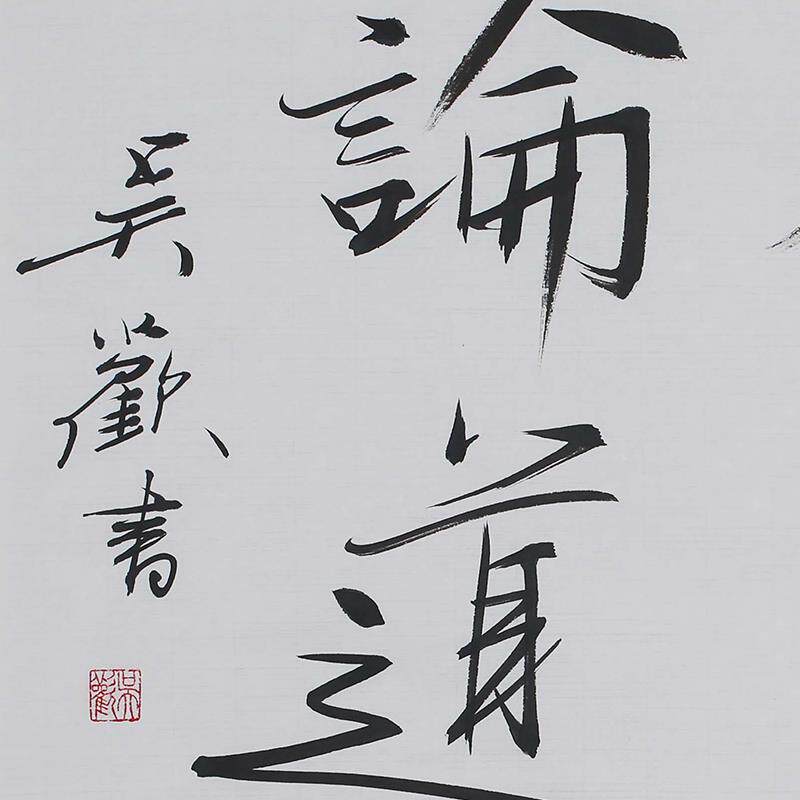 論道
吳歡書
吳歡